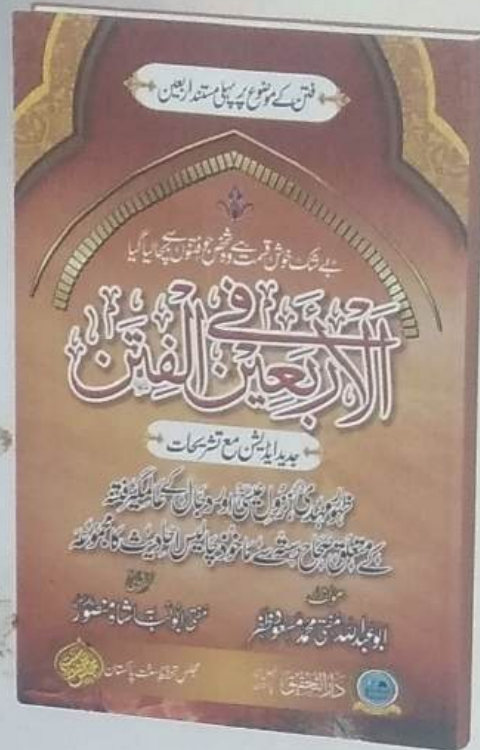 فتن کے موضوع پر پہلی مستند اربعین
بے شک خوش قسمت ہے وہ شخص جو فتنوں سے بچا لیا گیا
الأربعين في الفتن
جدید ایڈیشن مع تشریحات
ظہور مہدی، نزول عیسیٰ اور دجال کے عالمگیر فتنہ
کے متعلق صحاح ستہ سے ماخوذ چالیس احادیث کا مجموعہ
مؤلف
ابو عبداللہ مفتی محمد مسعود ظفر
مفتی ابو لبابہ شاہ منصور
دار التحقيق
مجلس تحفظ سنت پاکستان